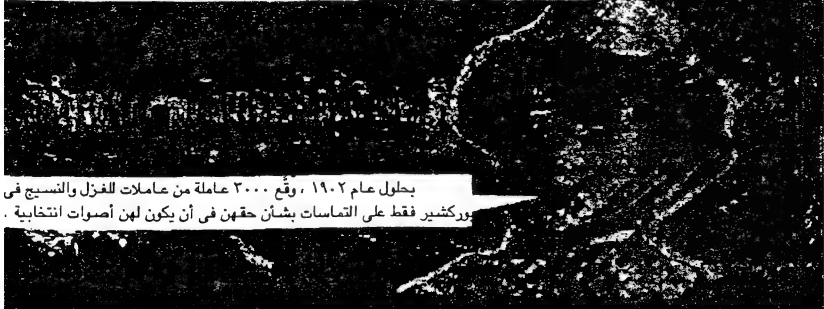 بحلول عام ١٩٠٢ ، وقَّع ٣٠٠٠ عاملة من عاملات للغزل والنسيج فى
يوركشير فقط على التماسات بشأن حقهن فى أن يكون لهن أصوات انتخابية .